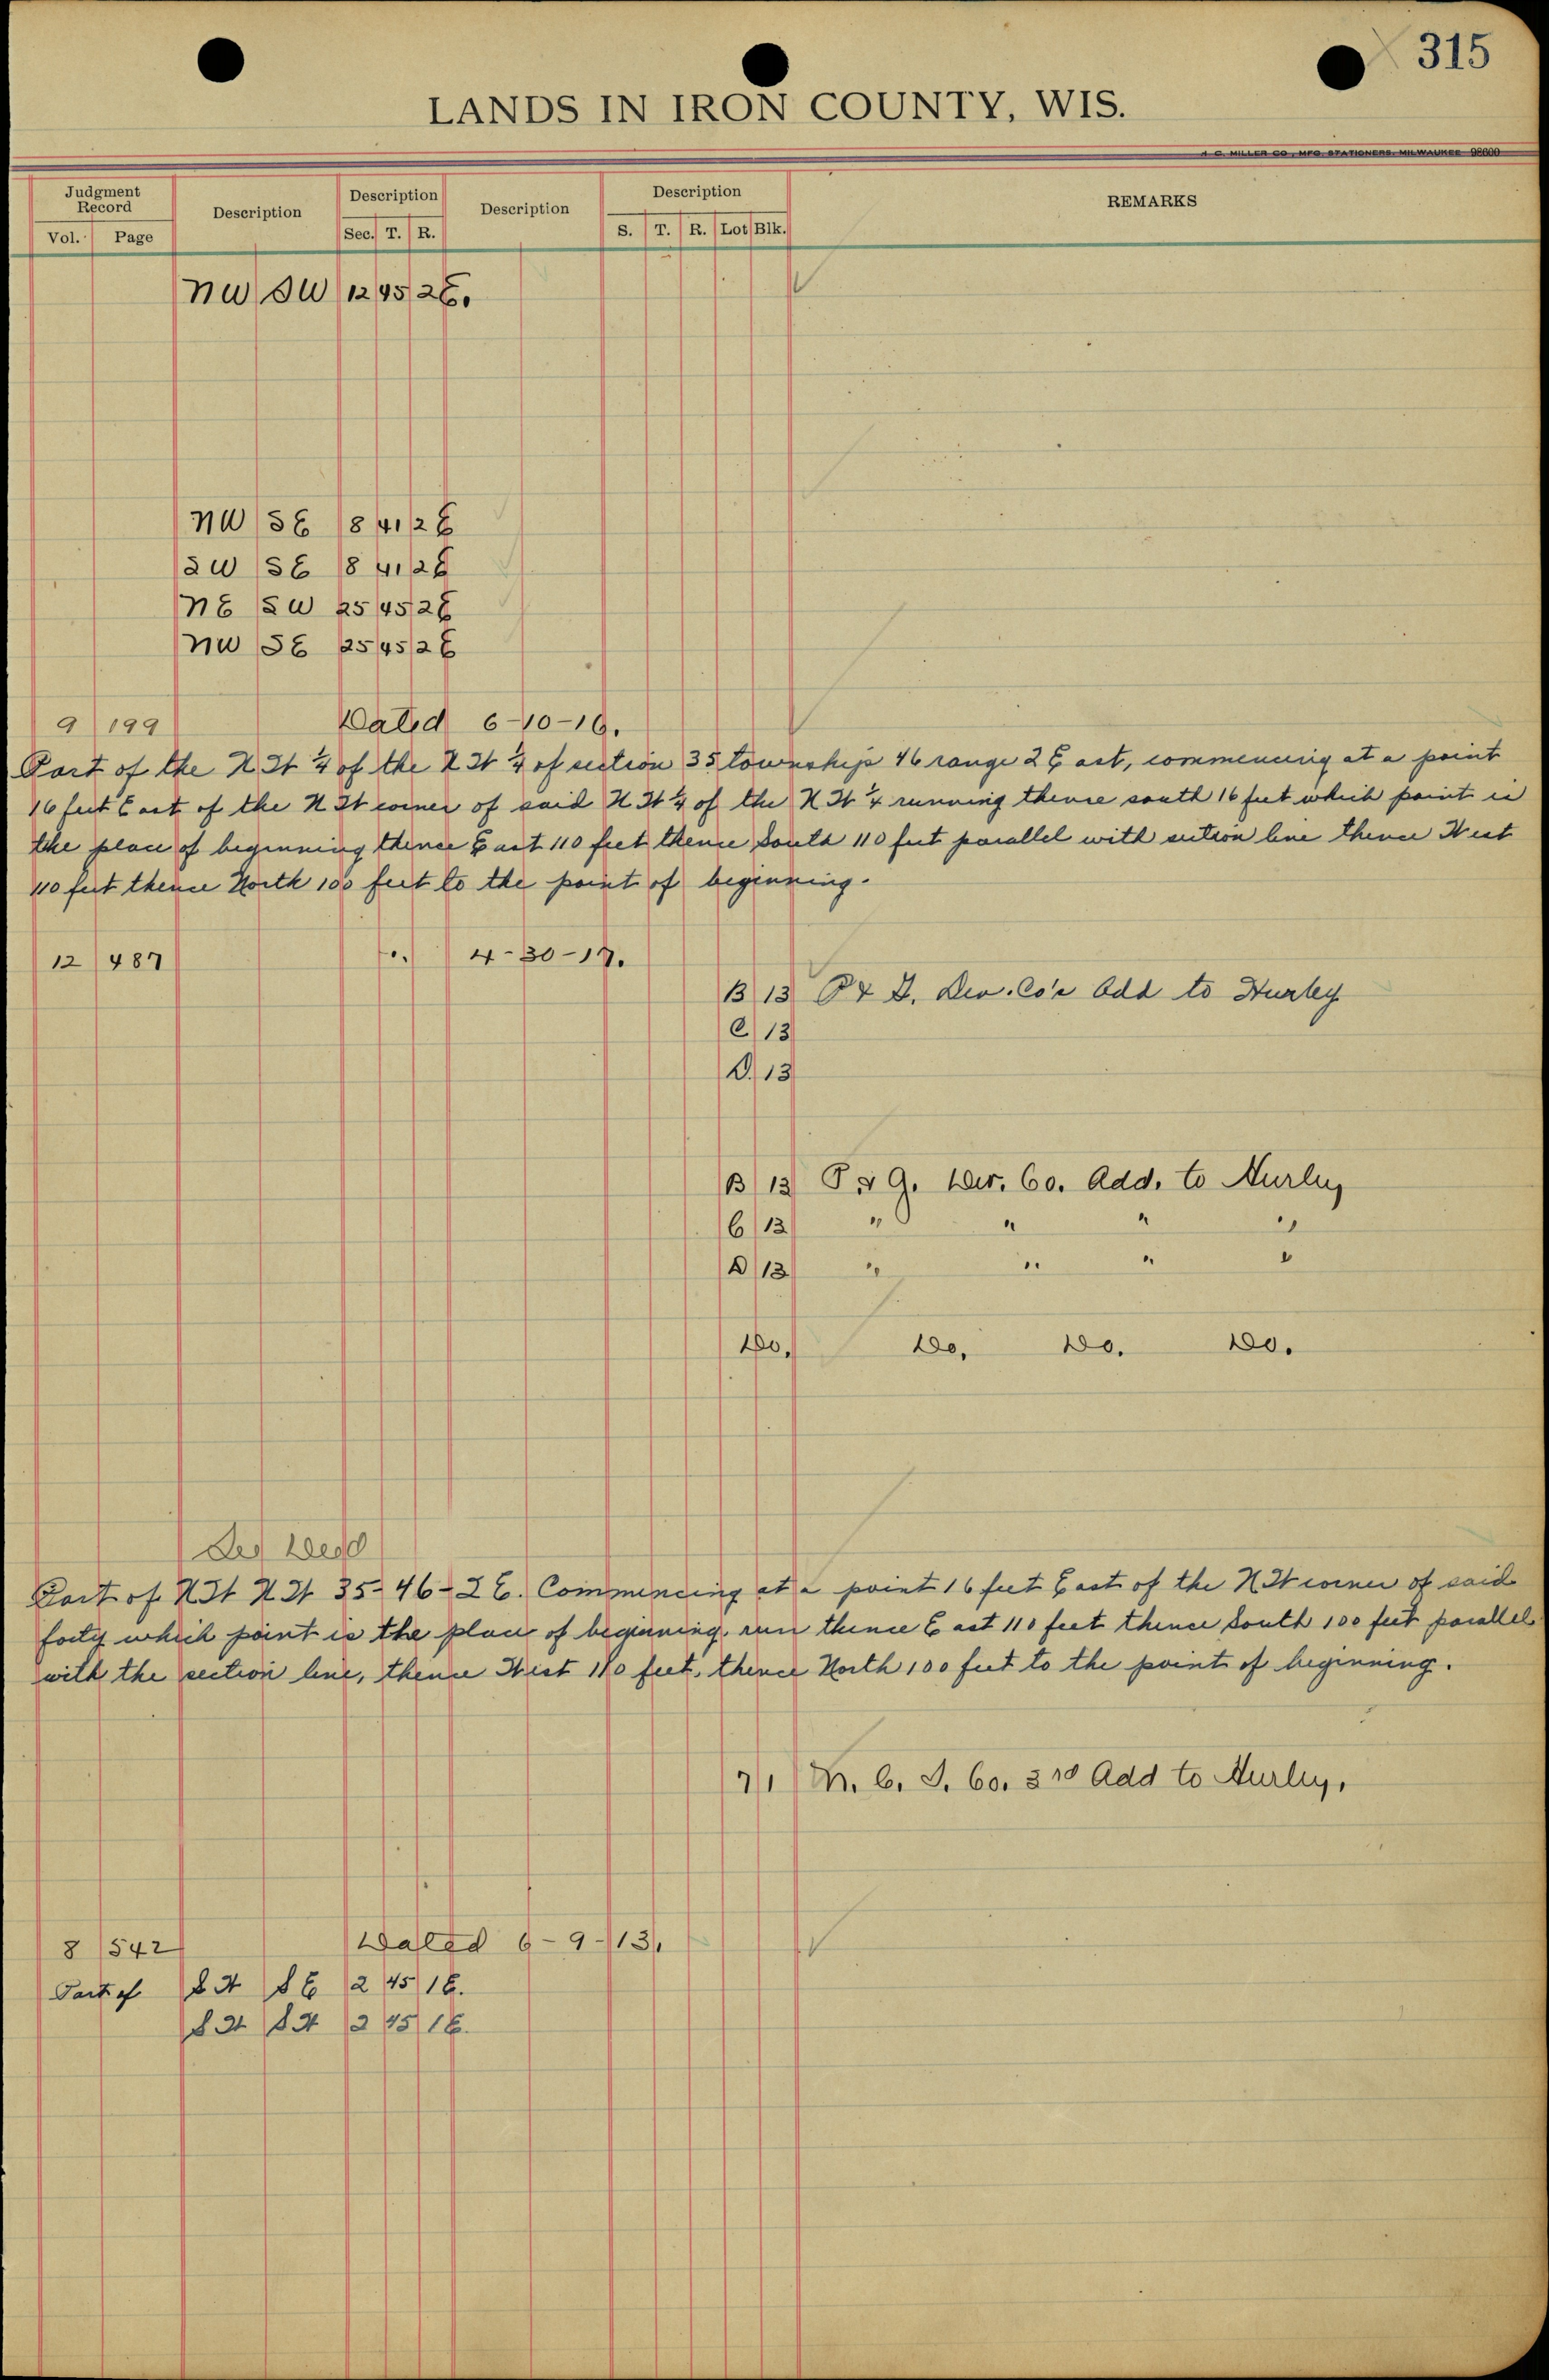 315
LANDS IN IRON COUNTY, WIS.
H. C. MILLER CO., MFG. STATIONERS, MILWAUKEE 98600
Judgment Record Description Description Description Description REMARKS
Vol. Page Sec. T. R. S. T. R. Lot Blk.
NW SW 12 45 2E.
NW SE 18 41 2E
SW SE 18 41 2E
NE SW 25 45 2E
NW SE 25 45 2E
9 199 Dated 6-10-16.
Part of the N W ¼ of the N W ¼ of section 35 township 46 range 2 East, commencing at a point
16 feet East of the N W corner of said N W ¼ of the N W ¼ running thence south 16 feet which point is
the place of beginning thence East 110 feet thence South 110 feet parallel with section line thence West
110 feet thence North 100 feet to the point of beginning.
12 487 4-30-17.
B 13 P & G. Dev. Co's Add to Hurley
C 13
D. 13
B 13 P & G. Dev. Co. Add. to Hurley
C 13 " " " "
D 13 " " " "
Do. Do. Do. Do.
Deed
Part of N W N W 35-46-2 E. Commencing at a point 16 feet East of the N W corner of said
forty which point is the place of beginning, run thence East 110 feet thence South 100 feet parallel
with the section line, thence West 110 feet, thence North 100 feet to the point of beginning.
7 1 M. C. I. Co. 3rd Add to Hurley,
8 542 Dated 6-9-13.
Part of S W S E 2 45 1E.
S W S W 2 45 1E.